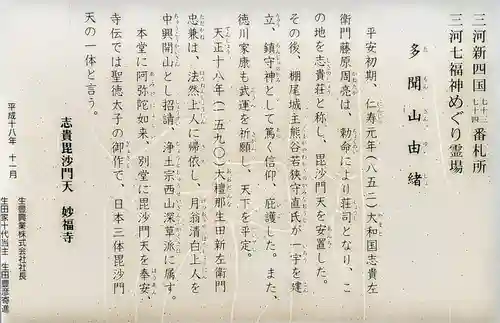 三河新四国 七十三 七十四 番札所
三河七福神めぐり霊場
多聞山由緒
平安初期、仁寿元年(八五一)大和国志貴左
衛門藤原周亮は、勅命により荘司となり、こ
の地を志貴荘と称し、毘沙門天を安置した。
その後、棚尾城主熊谷若狭守直氏が一宇を建
立、鎮守神として篤く信仰、庇護した。また、
徳川家康も武運を祈願し、天下を平定。
天正十八年(一五九〇)大檀那生田新左衛門
忠兼は、法然上人に帰依し、月翁清白上人を
中興開山とし招請、浄土宗西山深草派に属す。
本堂に阿弥陀如来、別堂に毘沙門天を奉安、
寺伝では聖徳太子の御作で、日本三体毘沙門
天の一体と言う。
志貴毘沙門天 妙福寺
平成十八年 十一月
生豊興業株式会社社長
生田家十代当主 生田豊彦寄進